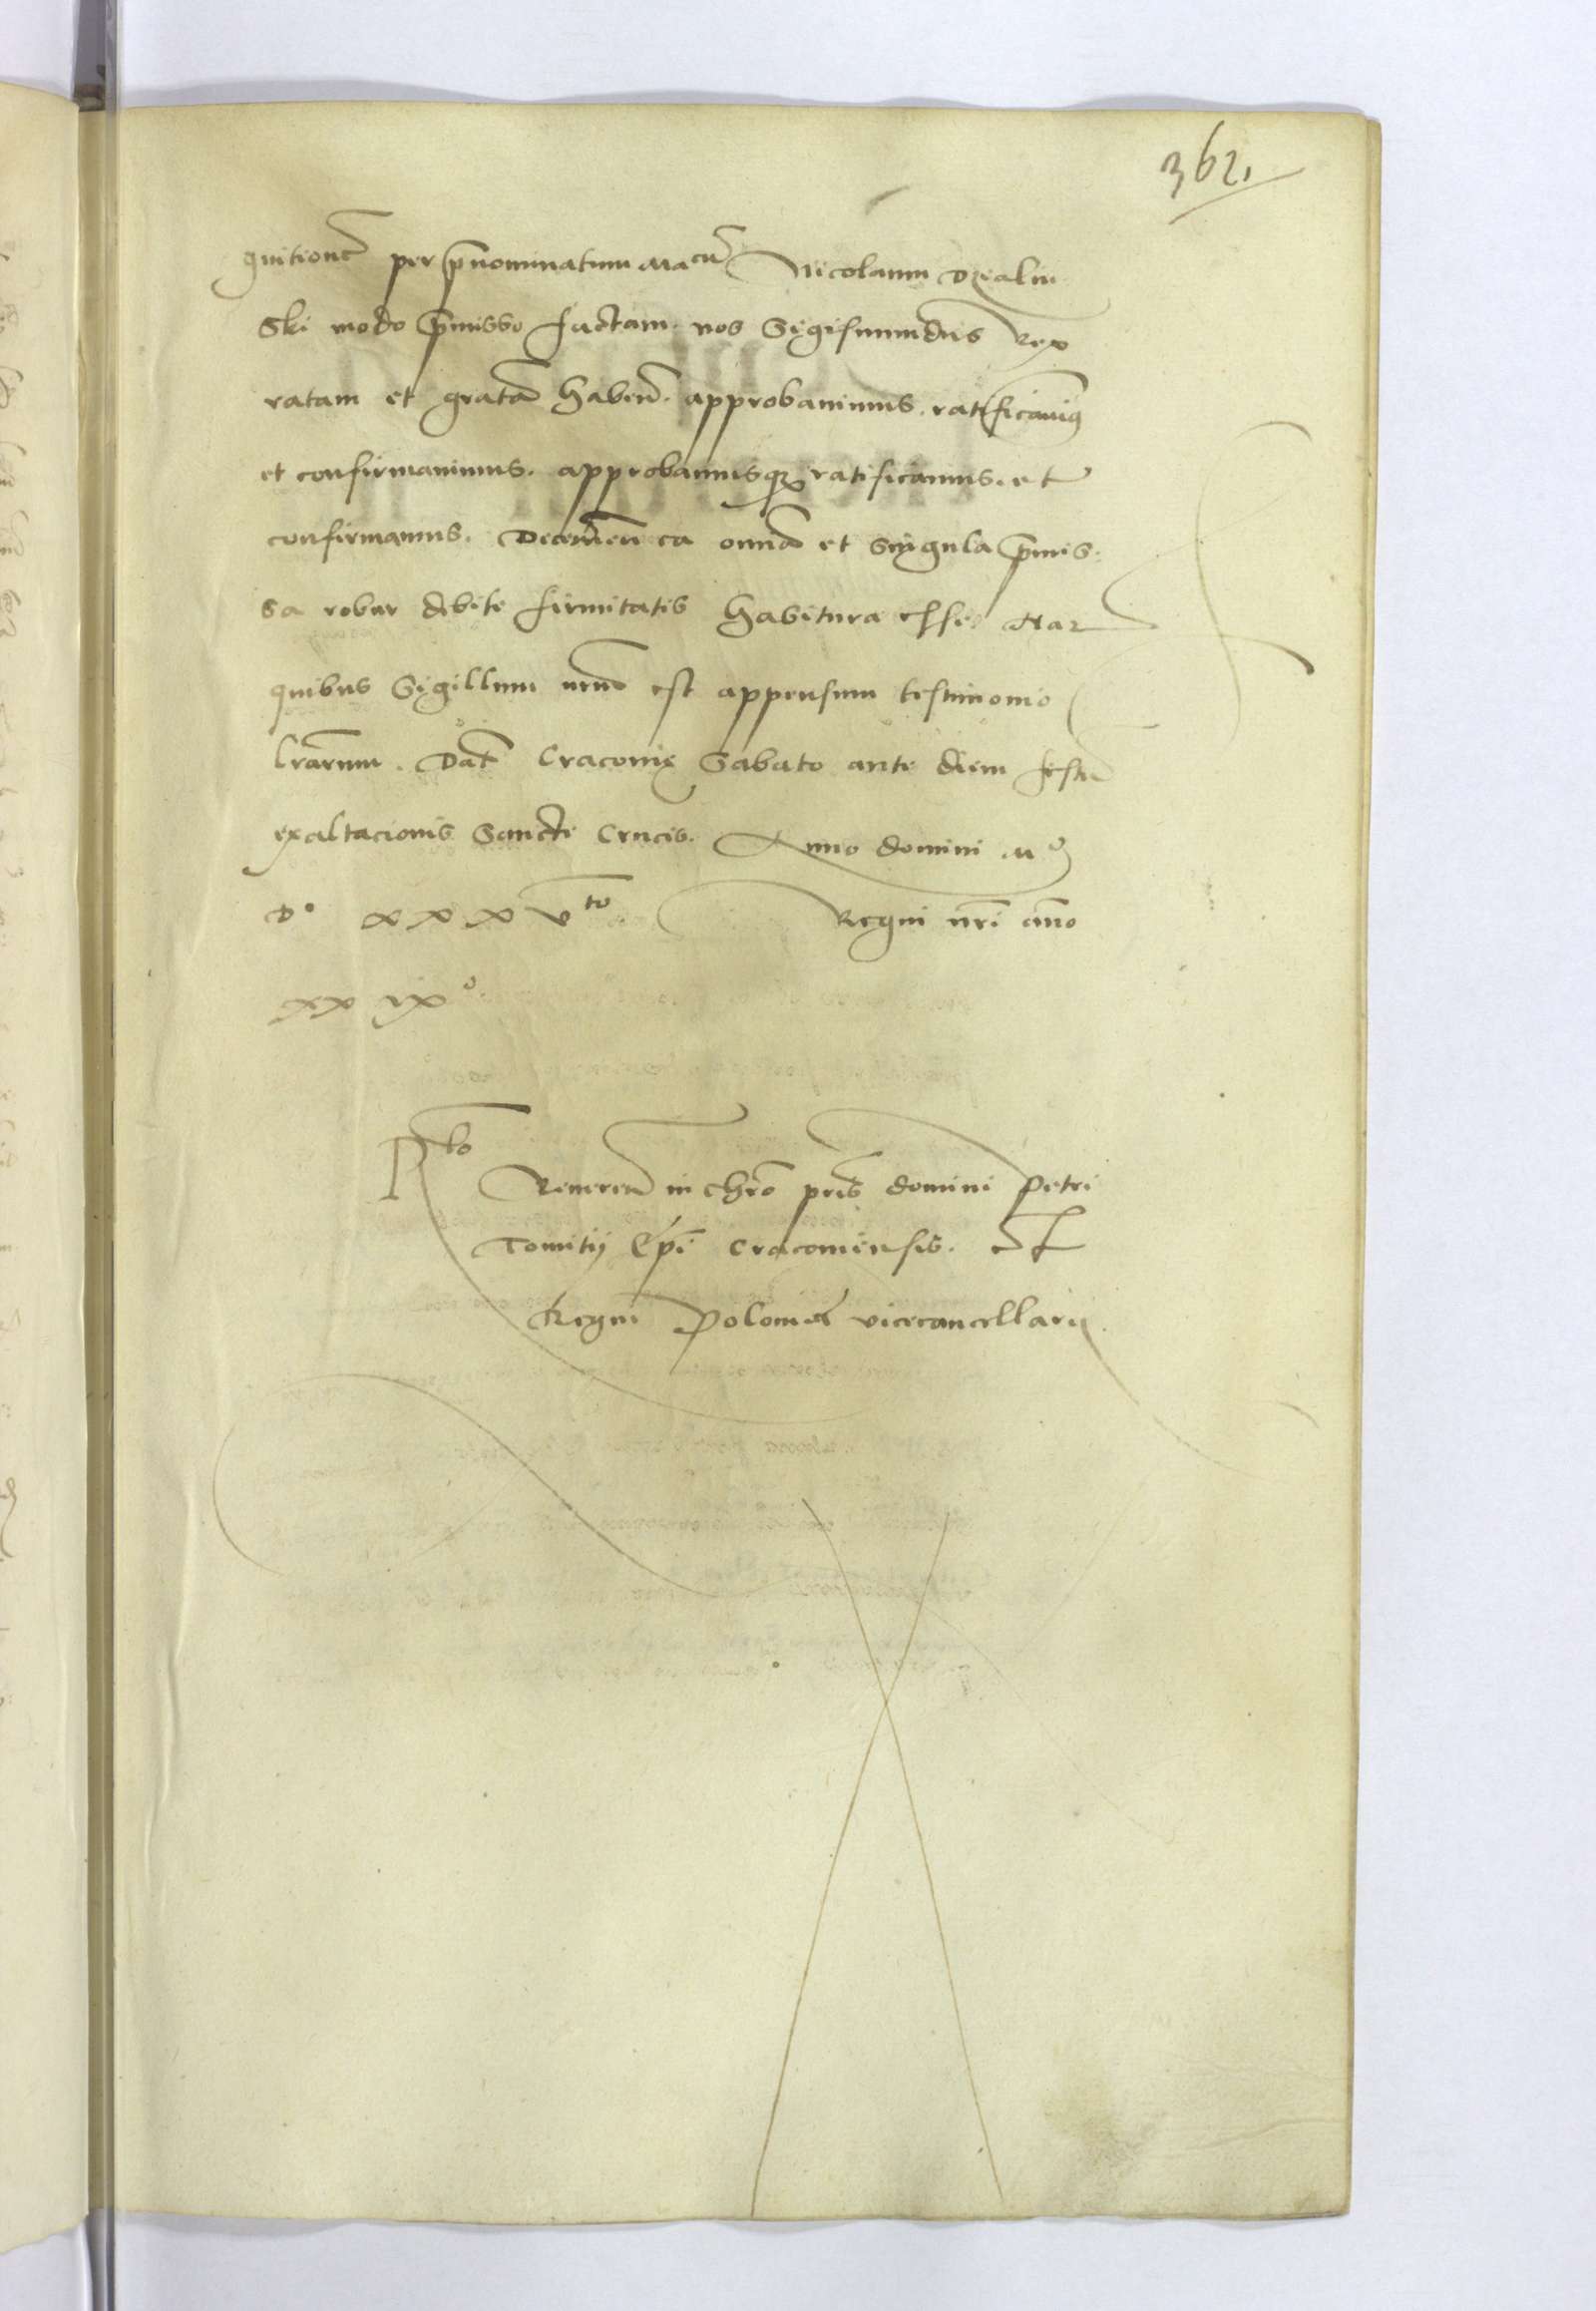 362.
gnitionem per p̄nominatum Mag͞cum Nicolaum Dzialin
ski modo p̄misso factam. nos Sigismundus Rex
ratam et gratā haben̄. approbavimus. ratificavimq
et confirmavimus. approbamusq; ratificamus. et
confirmamus. Decernen̄ ea omnia et singula p̄mis:
sa robur debite firmitatis habitura esse. Har
quibus Sigillum nrm̄ est appensum testimonio
lrārum. Dat̄ Cracovię Sabato ante diem festi
exaltacionis Sancte Crucis. Anno domini Mº
Dº xxxvto Regni nr̄i an̄o
xx ixº.
Rlo Reveren̄ in chr̄o pr̄is domini Petri
Tomitij Ep̄i Cracoviensis. et
Regni Polonie vicecancellarij.